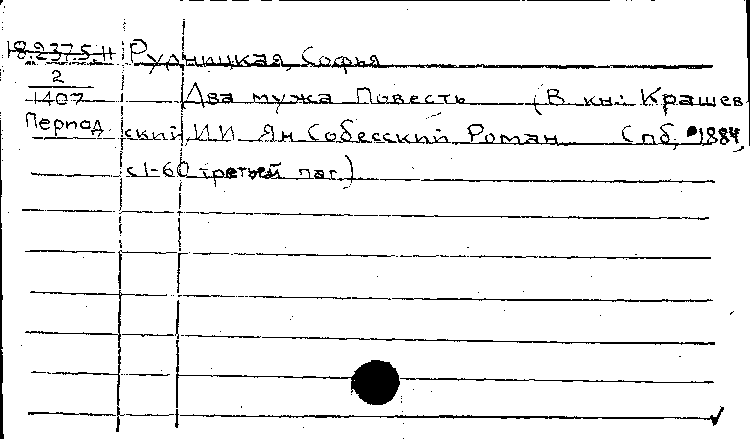 18.237.5.11 Рудницкая, Софья
2
1407
Два мужа Повесть (В кн.: Крашев
Период. ский, И.И. Ян Собесский Роман Спб, 1884,
с 1-60 третьей паг.)